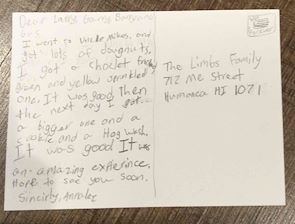 Dear Larry, Garry, Barry and
I went to Uncle Mikes, and
got lots of doughnuts,
I got a choclet
green and yellow sprinkled
one. It was good then
the next day I got
a bigger one and a
cookie and a Hog wash.
It was good It was
an amazing experince.
Hope to see you soon.
Sincirly, Annalee
The Limbs Family
712 Me Street
Humanca HI 1071